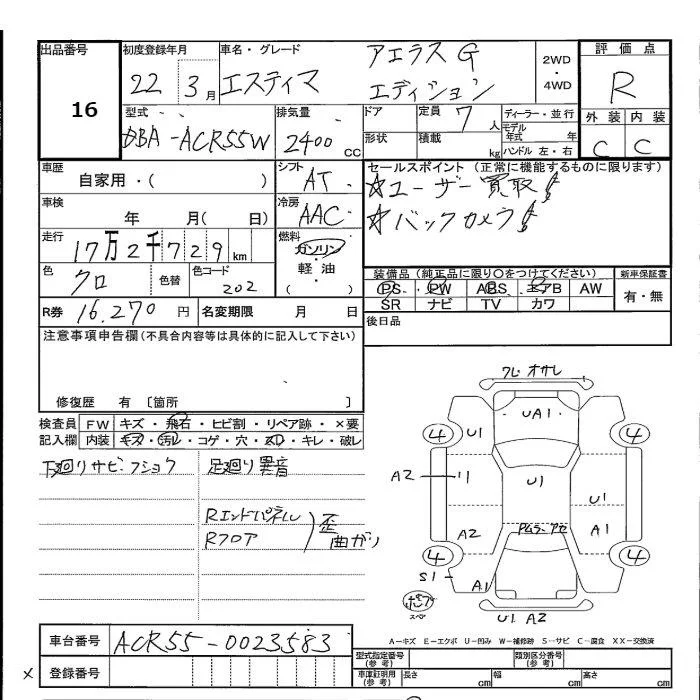 出品番号
16
初度登録年月
22 3月
車名・グレード
エスティマ
アエラス G
エディション
2WD
・
4WD
評価点
R
型式
DBA-ACR55W
排気量
2400 CC
ドア
形状
定員 7人
積載 kg
ディーラー・並行
モデル年式 年
ハンドル 左・右
外装 内装
C C
車歴
自家用・( )
シフト
AT
セールスポイント(正常に機能するものに限ります)
☆ユーザー買取!
☆バックカメラ!
車検
年 月( 日)
冷房
AAC
走行
17万2千729km
燃料
ガソリン
・
軽油
( )
色
クロ
色替
色コード
202
装備品(純正品に限り○をつけてください)
PS PW ABS エアB AW
SR ナビ TV カワ
新車保証書
有・無
R券 16,270円
名変期限 月 日
後日品
注意事項申告欄(不具合内容等は具体的に記入して下さい)
修復歴 有 〔箇所 〕
検査員
記入欄
FW キズ・飛石・ヒビ割・リペア跡・×要
内装 キズ・汚レ・コゲ・穴・スレ・キレ・破レ
下廻りサビ・フショク
足廻り異音
Rエンドパネル
Rフロア
歪
曲がり
グレ オサレ
UA1
4 U1 4
A2 U1 U1
U1
A2 A1
4 4
S1 A1
スペア
U1 A2
A-キズ E-エクボ U-凹み W-補修跡 S-サビ C-腐食 XX-交換済
車台番号 ACR55-0023583
× 登録番号
型式指定番号
(参考)
類別区分番号
(参考)
車庫証明用
(参考)
長さ cm
幅 cm
高さ cm